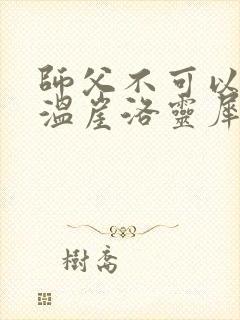 師父不可以
溫崖洛靈犀
樹喬